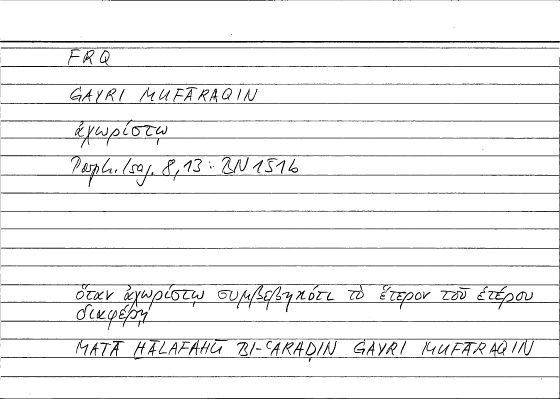 FRQ
ĠAYRI MUFĀRAQIN
ἀχωρίστῳ
Porph. Isag. 8,13 : BN 151b
ὅταν ἀχωρίστῳ συμβεβηκότι τὸ ἕτερον τοῦ ἑτέρου
διαφέρῃ
MATĀ ḪĀLAFAHŪ BI-ʿARAḌIN ĠAYRI MUFĀRAQIN